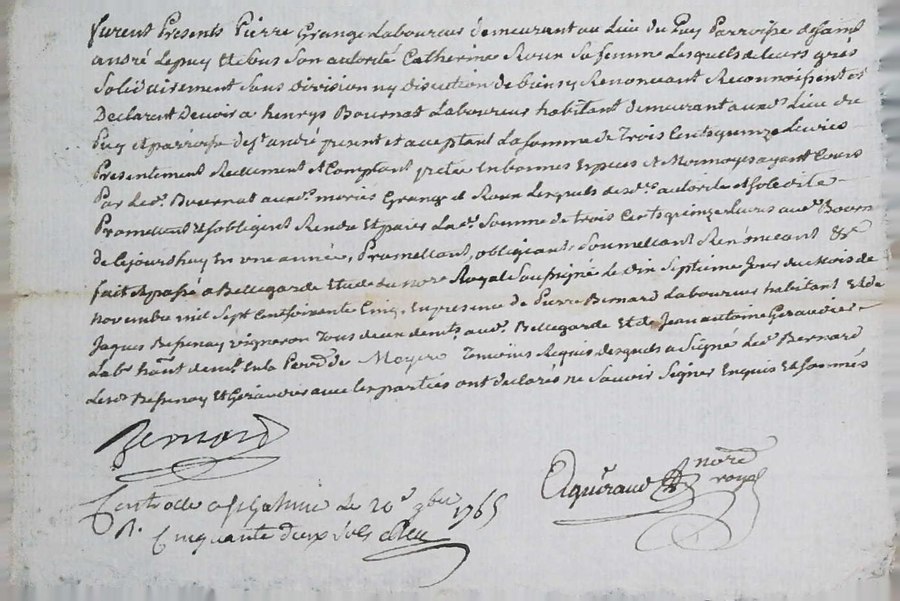 furent Presents Pierre Grange Laboureur demeurant au Lieu du Puy Parroisse de saint
andré Lepuy Et sous son autorité Catherine Roux sa femme Lesquels de leurs grés
solidairement sans division ny discution de biens y Renonceant Reconnoissent et
Declarent devoir a henrys Bournat Laboureur habitant demeurant aud. Lieu du
Puy et parroisse de st. andré present et acceptant La somme de Trois Cents quinze Livres
Presentement Reelement et Comptant pretée En bonnes Especes et Monnoyes ayant Cours
Par Led. Bournat aud. mariés Grange et Roux Lesquels desd. autorité et solidité
Promettent et s'obligent Rendre Et paier Lad. somme de trois Cents quinze Livres aud. Bournat
de Cejourdhuy En une année, Promettant, obligeant, soumettant Renonceant &c
fait et passé a Bellegarde Etude du nore Royal soussigné le dix septieme Jour du Mois de
novembre mil sept Cent soixante Cinq, En presence de Pierre Bernard Laboureur habitant Et de
Jaques Bessenay vigneron Tous deux demts. aud. Bellegarde Et de Jean antoine Geraudier
Labr. habt. demt. En la Perrd. de Temoins Requis desquels a signé Led. Bernard
Lesd. Bessenay Et Geraudier avec les parties ont declarés ne savoir signer Enquis Et sommés
Bernard
nore
royal
Controlle a st galmier Le 20e 9bre 1765
R. Cinquante deux sols